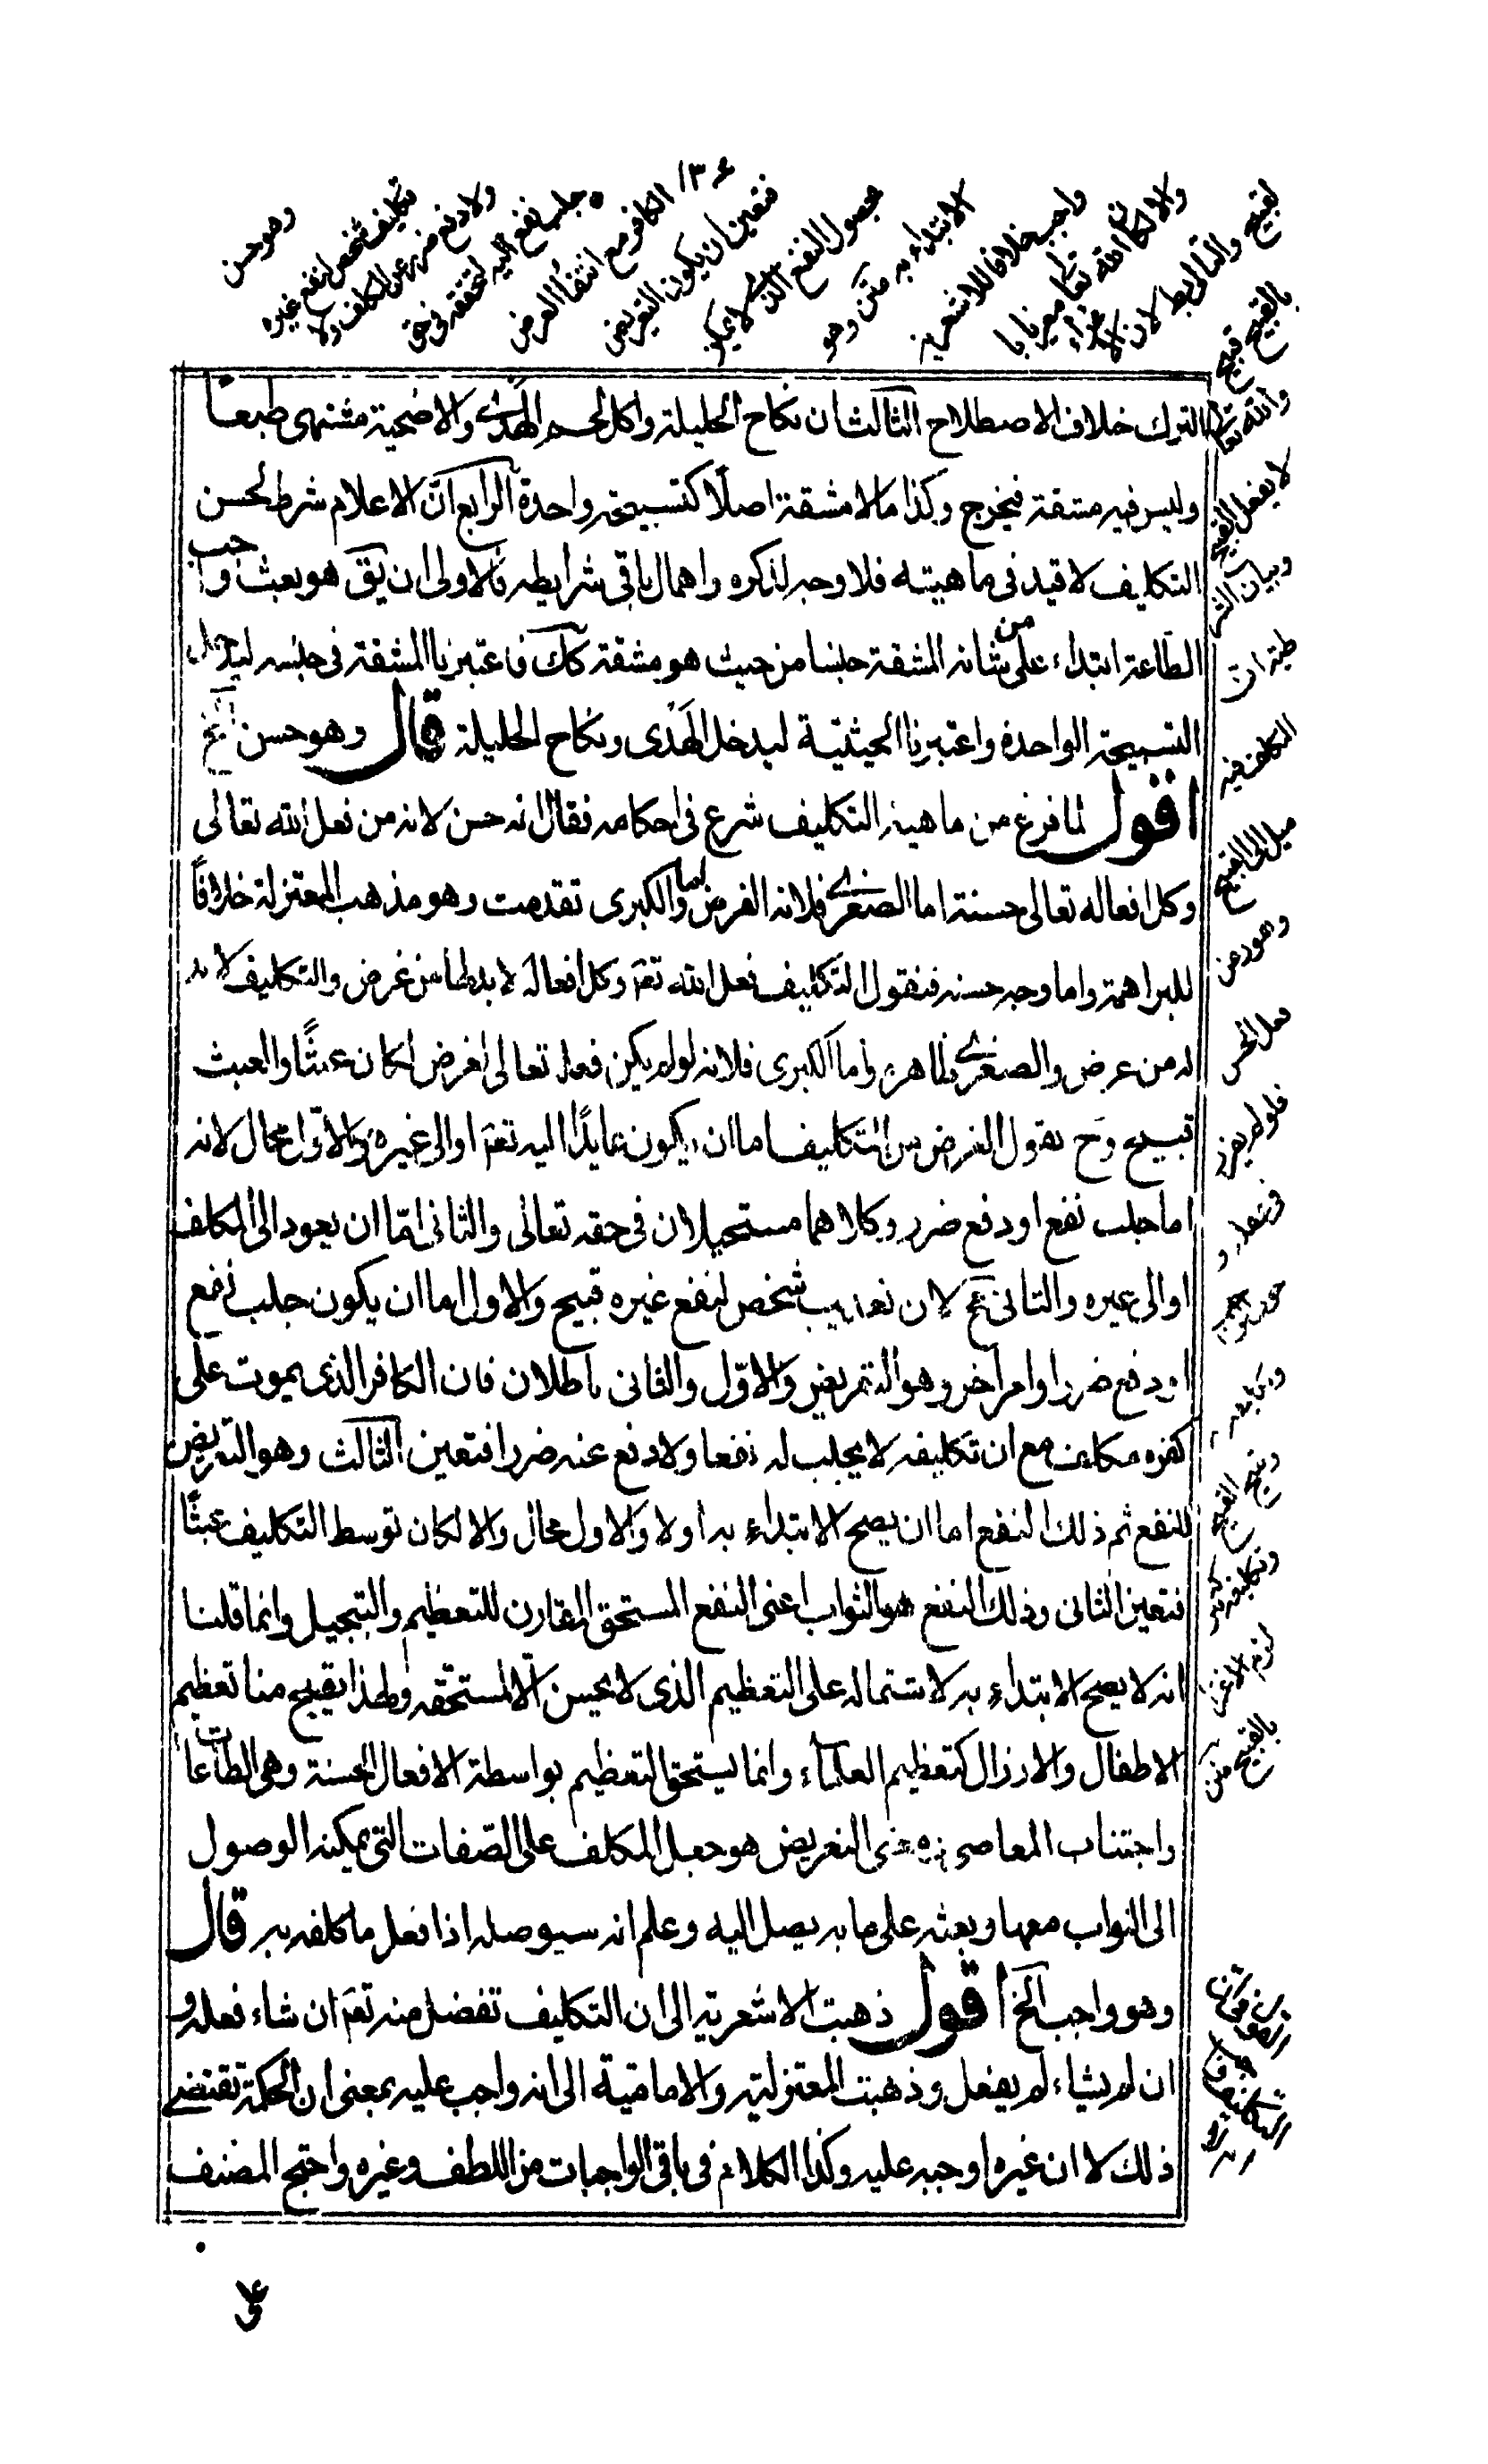 ١٣۶
وهو حسن
تكليف شخص لنفع غيره
ولا دفع ضرر عن المكلف ولا
جلب نفع اليه لتحققه فى حق
الكافر مع انتفاء الغرض
فتعين ان يكون التعريض
بحصول النفع الذى لا يمكن
الابتداء به متن وهو
واجب خلافا للاشعرية
ولا لكان الله تعا مغريا با
لقبيح والتالى بط لان الاغراء
بالقبيح قبيح
والله تعا
لا يفعل القبيح
وبيان الشر
طية ان
المكلف فيه
ميل الى القبيح
وفعل الحسن
فلو لم يقرر
وقبح القبيح
وتكليفه
لزم الاغراء
بالقبيح متن
الترك خلاف الاصطلاح الثالث ان نكاح الحليلة واكل لحم الهدى والاضحية مشتهى طبعا
وليس فيه مشقة فيخرج وكذا ما لا مشقة اصلا كتسبيحة واحدة الرابع ان الاعلام شرط لحسن
التكليف لا قيد فى ماهيته فلا وجه لذكره واهمال باقى شرايطه فالاولى ان يق هو بعث واجب
الطاعة ابتداء على من شانه المشقة جنسا من حيث هو مشقة كك فاعتبرنا المشقة فى جنسه ليدخل
التسبيحة الواحدة واعتبرنا الحيثية ليدخل الهدى ونكاح الحليلة قال وهو حسن الخ
اقول لما فرغ من ماهية التكليف شرع فى احكامه فقال انه حسن لانه من فعل الله تعالى
وكل افعاله تعالى حسنة اما الصغرى فلانه الفرض واما الكبرى تقدمت وهو مذهب المعتزلة خلافا
للبراهمة واما وجه حسنه فنقول التكليف فعل الله تعم وكل افعاله لا بد لها من غرض والتكليف لا بد
له من غرض والصغرى ظاهرة واما الكبرى فلانه لو لم يكن فعله تعالى لغرض لكان عبثا والعبث
قبيح وح نقول الغرض من التكليف اما ان يكون عايدا اليه تعم او الى غيره والاول محال لانه
اما جلب نفع او دفع ضرر وكلاهما مستحيلان فى حقه تعالى والثانى اما ان يعود الى المكلف
او الى غيره والثانى مح لان تعذيب شخص لنفع غيره قبيح والاول اما ان يكون جلب نفع
او دفع ضرر او امر آخر وهو التعريض والاول والثانى باطلان فان الكافر الذى يموت على
كفره مكلف مع ان تكليفه لا يجلب له نفعا ولا دفع عنه ضررا فتعين الثالث وهو التعريض
للنفع ثم ذلك النفع اما ان يصح الابتداء به او لا والاول محال والا لكان توسط التكليف عبثا
فتعين الثانى وذلك النفع هو الثواب اعنى النفع المستحق المقارن للتعظيم والتبجيل وانما قلنا
انه لا يصح الابتداء به لاشتماله على التعظيم الذى لا يحسن الا لمستحقه ولهذا يقبح منا تعظيم
الاطفال والارذال كتعظيم العلماء وانما يستحق التعظيم بواسطة الافعال الحسنة وهى الطاعات
واجتناب المعاصى ومعنى التعريض هو جعل المكلف على الصفات التى يمكنه الوصول
الى الثواب معها وبعثه على ما به يصل اليه وعلم انه سيوصله اذا فعل ما كلفه به قال
وهو واجب الخ اقول ذهبت الاشعرية الى ان التكليف تفضل منه تعم ان شاء فعله و
ان لم يشاء لم يفعل وذهبت المعتزلية والامامية الى انه واجب عليه بمعنى ان الحكمة تقتضى
ذلك لا ان غيره اوجبه عليه وكذا الكلام فى باقى الواجبات من اللطف وغيره واحتج المصنف